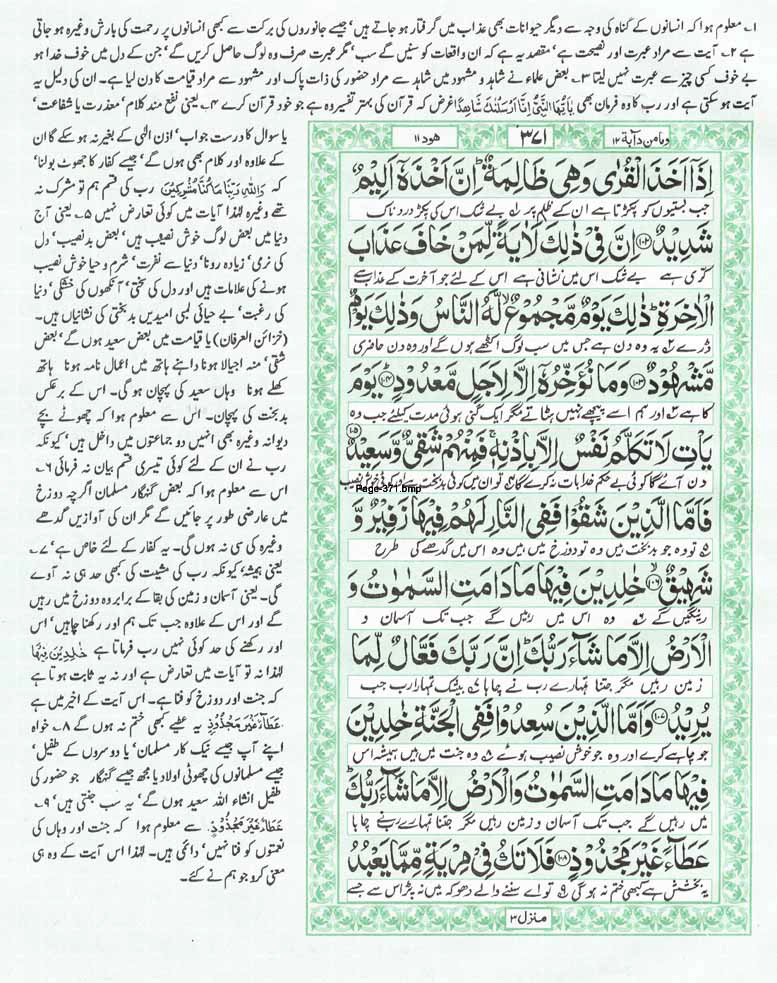 ۱۔ معلوم ہوا کہ انسانوں کے گناہ کی وجہ سے دیگر حیوانات بھی عذاب میں گرفتار ہو جاتے ہیں' جیسے جانوروں کی برکت سے کبھی انسانوں پر رحمت کی بارش وغیرہ ہو جاتی
ہے ۲۔ آیت سے مراد عبرت اور نصیحت ہے' مقصد یہ ہے کہ ان واقعات کو سنیں گے سب' مگر عبرت صرف وہ لوگ حاصل کریں گے' جن کے دل میں خوف خدا ہو
بے خوف کسی چیز سے عبرت نہیں لیتا ۳۔ بعض علماء نے شاہد و مشہود میں شاہد سے مراد حضور کی ذات پاک اور مشہود سے مراد قیامت کا دن لیا ہے۔ ان کی دلیل یہ
آیت ہو سکتی ہے اور رب کا وہ فرمان بھی يٰٓاَيُّهَا النَّبِىُّ اِنَّآ اَرْسَلْنٰكَ شَاهِدًا غرض کہ قرآن کی بہتر تفسیر وہ ہے جو خود قرآن کرے ۴۔ یعنی نفع مند کلام' معذرت یا شفاعت'
یا سوال کا درست جواب' اذن الٰہی کے بغیر نہ ہو سکے گا ان
کے علاوہ اور کلام بھی ہوں گے' جیسے کفار کا جھوٹ بولنا'
کہ وَاللّٰهِ رَبِّنَا مَا كُنَّا مُشْرِكِيْنَ رب کی قسم ہم تو مشرک نہ
تھے وغیرہ لہٰذا آیات میں کوئی تعارض نہیں ۵۔ یعنی آج
دنیا میں بعض لوگ خوش نصیب ہیں' بعض بدنصیب' دل
کی نرمی' زیادہ رونا' دنیا سے نفرت' شرم و حیا خوش نصیب
ہونے کی علامات ہیں اور دل کی سختی' آنکھوں کی خشکی' دنیا
کی رغبت' بے حیائی لمبی امیدیں بدبختی کی نشانیاں ہیں۔
(خزائن العرفان) یا قیامت میں بعض سعید ہوں گے' بعض
شقی' منہ اجیالا ہونا داہنے ہاتھ میں اعمال نامہ ہونا ہاتھ
کھلے ہونا وہاں سعید کی پہچان ہو گی۔ اس کے برعکس
بدبخت کی پہچان۔ اس سے معلوم ہوا کہ چھوٹے بچے
دیوانہ وغیرہ بھی انہیں دو جماعتوں میں داخل ہیں' کیونکہ
رب نے ان کے لئے کوئی تیسری قسم بیان نہ فرمائی ۶۔
اس سے معلوم ہوا کہ بعض گنہگار مسلمان اگرچہ دوزخ
میں عارضی طور پر جائیں گے مگر ان کی آوازیں گدھے
وغیرہ کی سی نہ ہوں گی۔ یہ کفار کے لئے خاص ہے' ۷۔
یعنی ہمیشہ' کیونکہ رب کی مشیت کی کبھی حد ہی نہ آوے
گی۔ یعنی آسمان و زمین کی بقا کے برابر وہ دوزخ میں رہیں
گے اور اس کے علاوہ جب تک ہم اور رکھنا چاہیں' اس
اور رکھنے کی حد کوئی نہیں رب فرماتا ہے خٰلِدِيْنَ فِيْهَا
لہٰذا نہ تو آیات میں تعارض ہے اور نہ یہ ثابت ہوتا ہے
کہ جنت اور دوزخ کو فنا ہے۔ اس آیت کے اخیر میں ہے
عَطَآءً غَيْرَ مَجْذُوْذٍ یہ عطیے کبھی ختم نہ ہوں گے ۸۔ خواہ
اپنے آپ جیسے نیک کار مسلمان' یا دوسروں کے طفیل'
جیسے مسلمانوں کی چھوٹی اولاد یا مجھ جیسے گنہگار جو حضور کی
طفیل انشاء اللہ سعید ہوں گے' یہ سب جنتی ہیں' ۹۔
عَطَآءً غَيْرَ مَجْذُوْذٍ سے معلوم ہوا کہ جنت اور وہاں کی
نعمتوں کو فنا نہیں' دائمی ہیں۔ لہٰذا اس آیت کے وہ ہی
معنی کرو جو ہم نے کئے۔
ومامن دآبة ۱۲
۳۷۱
ھود ۱۱
اِذَآ اَخَذَ الْقُرٰى وَهِىَ ظَالِمَةٌ ؕ اِنَّ اَخْذَهٗٓ اَلِيْمٌ
جب بستیوں کو پکڑتا ہے ان کے ظلم پر ۱ بے شک اس کی پکڑ دردناک
شَدِيْدٌ ۝۱۰۲ اِنَّ فِىْ ذٰلِكَ لَاٰيَةً لِّمَنْ خَافَ عَذَابَ
کڑی ہے بے شک اس میں نشانی ہے اس کے لئے جو آخرت کے عذاب سے
الْاٰخِرَةِ ؕ ذٰلِكَ يَوْمٌ مَّجْمُوْعٌ ۙ لَّهُ النَّاسُ وَذٰلِكَ يَوْمٌ
ڈرے ۲ یہ وہ دن ہے جس میں سب لوگ اکٹھے ہوں گے اور وہ دن حاضری
مَّشْهُوْدٌ ۝۱۰۳ وَمَا نُؤَخِّرُهٗٓ اِلَّا لِاَجَلٍ مَّعْدُوْدٍ ۝۱۰۴ يَوْمَ
کا ہے ۳ اور ہم اسے پیچھے نہیں ہٹاتے مگر ایک گنی ہوئی مدت کیلئے جب وہ
يَاْتِ لَا تَكَلَّمُ نَفْسٌ اِلَّا بِاِذْنِهٖ ۚ فَمِنْهُمْ شَقِىٌّ وَّسَعِيْدٌ ۝۱۰۵
دن آئے گا کوئی بے حکم خدا بات نہ کرے گا ۴ تو ان میں کوئی بدبخت ہے اور کوئی خوش نصیب
Page-371.bmp
فَاَمَّا الَّذِيْنَ شَقُوْا فَفِى النَّارِ لَهُمْ فِيْهَا زَفِيْرٌ وَّ
۵ تو وہ جو بدبخت ہیں وہ تو دوزخ میں ہیں وہ اس میں گدھے کی طرح
شَهِيْقٌ ۝۱۰۶ خٰلِدِيْنَ فِيْهَا مَا دَامَتِ السَّمٰوٰتُ وَ
رینگیں گے ۶ وہ اس میں رہیں گے جب تک آسمان و
الْاَرْضُ اِلَّا مَا شَآءَ رَبُّكَ ؕ اِنَّ رَبَّكَ فَعَّالٌ لِّمَا
زمین رہیں مگر جتنا تمہارے رب نے چاہا ۷ بیشک تمہارا رب جب
يُرِيْدُ ۝۱۰۷ وَاَمَّا الَّذِيْنَ سُعِدُوْا فَفِى الْجَنَّةِ خٰلِدِيْنَ
جو چاہے کرے اور وہ جو خوش نصیب ہوئے ۸ وہ جنت میں ہیں ہمیشہ اس
فِيْهَا مَا دَامَتِ السَّمٰوٰتُ وَالْاَرْضُ اِلَّا مَا شَآءَ رَبُّكَ ؕ
میں رہیں گے جب تک آسمان و زمین رہیں مگر جتنا تمہارے رب نے چاہا
عَطَآءً غَيْرَ مَجْذُوْذٍ ۝۱۰۸ فَلَا تَكُ فِىْ مِرْيَةٍ مِّمَّا يَعْبُدُ
یہ بخشش ہے کبھی ختم نہ ہو گی ۹ تو اے سننے والے دھوکہ میں نہ پڑ اس سے جسے
منزل ۳